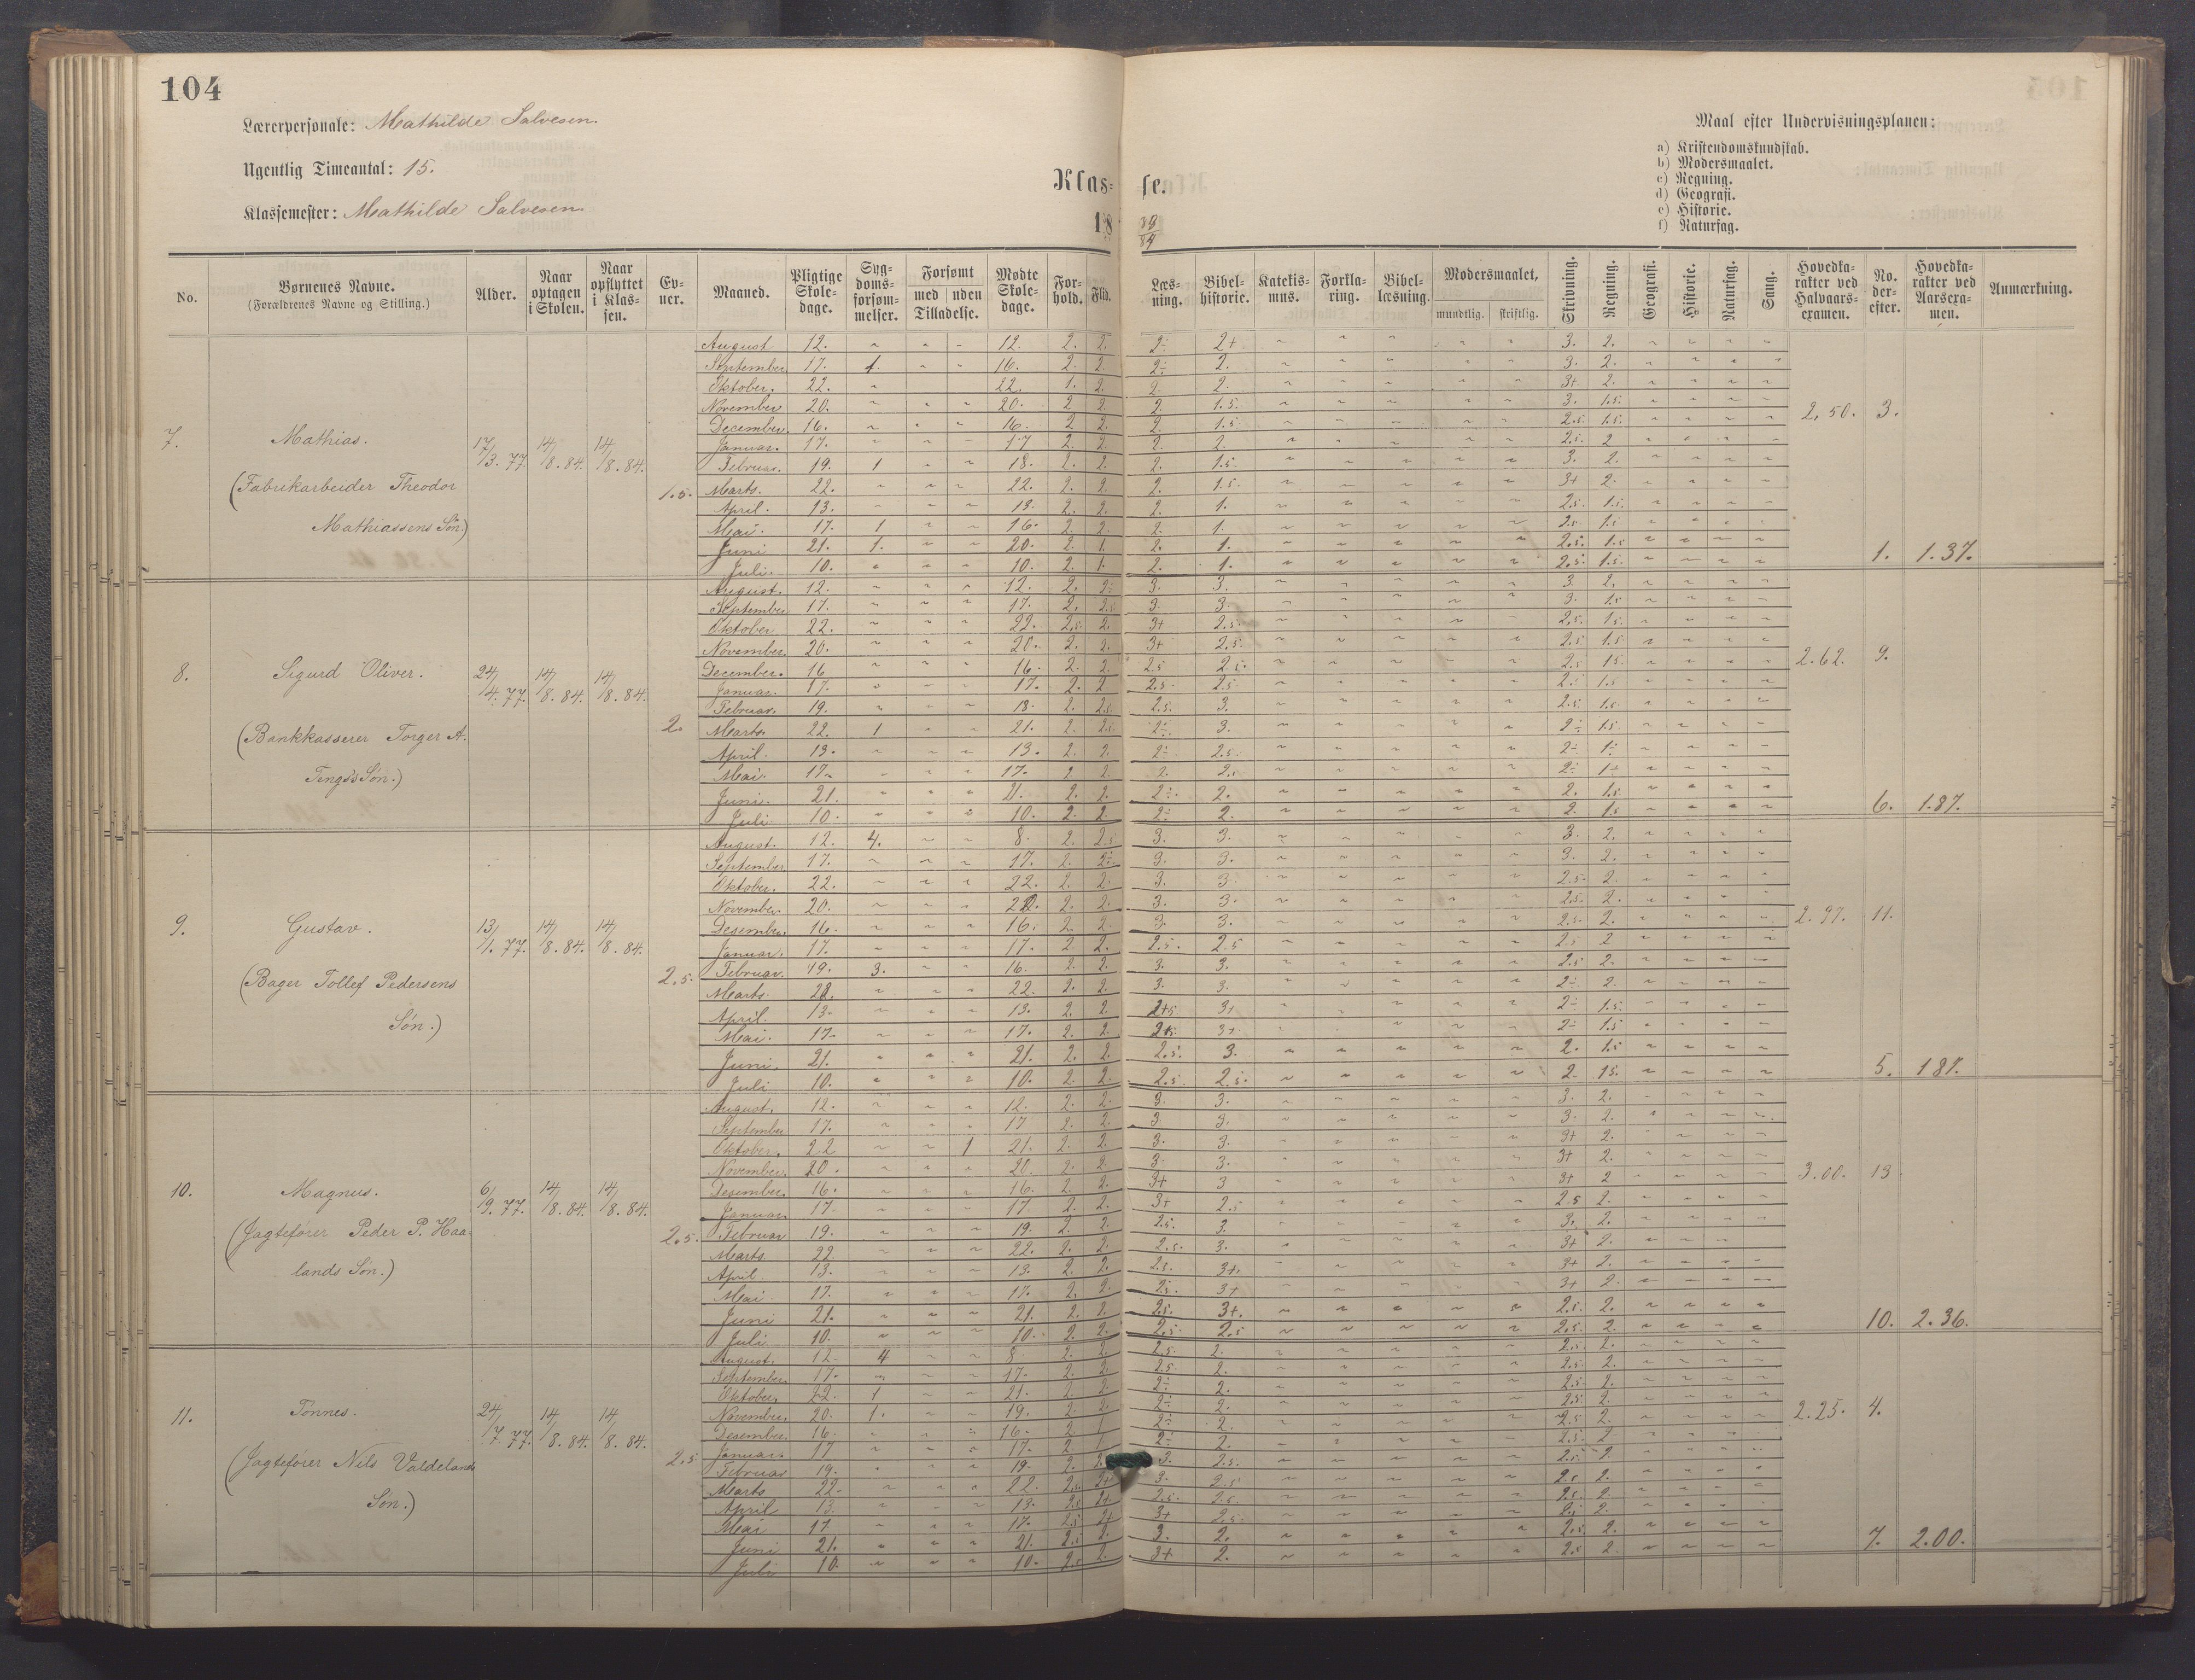 104
Lærerpersonale: Mathilde Salvesen.
Ugentlig Timeantal: 15.
Klassemester: Mathilde Salvesen
Klas- se.
18 83/84
Maal efter Undervisningsplanen:
a) Kristendomskundskab.
b) Modersmaalet.
c) Regning.
d) Geografi.
e) Historie.
f) Naturfag.
No. Børnenes Navne. (Forældrenes Navne og Stilling.) Alder. Naar optagen i Skolen. Naar opflyttet i Klassen. Evner. Maaned. Pligtige Skoledage. Sygdomsforsømmelser. Forsømt med uden Tilladelse. Mødte Skoledage. Forhold. Flid. Læsning. Bibelhistorie. Katekismus. Forklaring. Bibellæsning. Modersmaalet, mundtlig. skriftlig. Skrivning. Regning. Geografi. Historie. Naturfag. Sang. Hovedkarakter ved Halvaarsexamen. No. derefter. Hovedkarakter ved Aarsexamen. Anmærkning.
7. Mathias. 17/3. 77. 14/8. 84. 14/8. 84. 1.5.
(Fabrikarbeider Theodor
Mathiassens Søn.)
August 12. 12. 2. 2. 2÷ 2+ 3. 2.
September 17. 1. 16. 2. 2. 2÷ 2. 3. 2.
Oktober. 22. 22. 1. 2. 2. 2. 3+ 2.
November 20. 20. 2 2. 2. 1.5. 3. 1.5.
December. 16. 16. 2 2. 2. 1.5 2.5. 1.5.
2,50. 3.
Januar. 17. 17 2. 2. 2. 2. 2.5. 2
Februar. 19. 1 18. 2. 2. 2. 1.5. 3. 2.
Marts. 22. 22. 2. 2. 2. 1.5. 3+ 2.
April. 13. 13. 2. 2. 2. 1. 2.5. 1.5.
Mai. 17. 1 16. 2. 2. 2. 1. 2.5 1.5
Juni 21. 1. 20. 2. 1. 2. 1. 2.5. 1.5
Juli. 10. 10. 2. 1. 2. 1. 2.5. 1.5.
1. 1.37.
8. Sigurd Oliver. 24/4. 77. 14/8. 84. 14/8. 84. 2.
(Bankkasserer Torger A.
Tengs's Søn.)
August. 12. 12. 2. 2÷ 3. 3. 3 2.
September 17. 17. 2. 2.5 3. 3. 3. 1.5
Oktober 22. 22. 2.5. 2. 3+ 2.5. 2.5. 1.5.
November. 20. 20. 2. 2. 3+ 2.5. 2.5 1.5.
December. 16 16. 2. 2. 2.5 2.5. 2.5 1.5.
2.62. 9.
Januar. 17. 17. 2. 2 2.5. 2.5. 2.5 1.5
Februar. 19. 18. 2. 2.5. 2.5. 3. 2.5 1.5.
Marts. 22. 1 21. 2. 2.5. 2÷. 3. 2÷ 1.5.
April. 13. 13. 2. 2. 2÷ 2.5. 2÷ 1÷
Mai. 17. 17. 2. 2. 2. 2.5 2÷ 1÷
Juni. 21. 21. 2. 2. 2÷. 2. 2. 1.5.
Juli. 10. 10. 2. 2. 2÷ 2. 2. 1.5
6. 1.87.
9. Gustav. 13/1. 77. 14/8. 84. 14/8. 84. 2.5.
(Bager Tollef Pedersens
Søn.)
August. 12. 4. 8. 2. 2.5 3. 3. 3. 2.
September 17. 17. 2. 2÷ 3. 3. 3. 2.
Oktober. 22. 22. 2. 2. 3. 3. 2.5. 2.
November. 20. 20. 2. 2. 3. 3. 2.5. 2.
Desember. 16. 16. 2. 2. 3. 3. 2.5. 2.
2.97. 11.
Januar. 17. 17. 2 2. 2.5. 2.5 2.5 2
Februar. 19. 3. 16. 2. 2. 3. 3. 2.5 2.
Marts. 22. 22. 2. 2. 3. 3. 2÷ 2.
April. 13. 13. 2. 2. 3+ 2÷ 1.5.
Mai. 17. 17. 2. 2. 3+ 2÷ 1.5
Juni. 21. 21. 2. 2. 2.5. 3. 2. 1.5
Juli 10. 10. 2. 2. 2.5. 2.5. 2 1.5.
5. 1.87.
10. Magnus. 6/9. 77. 14/8. 84. 14/8. 84. 2.5.
(Jagtefører Peder P. Haa-
lands Søn.)
August. 12. 12. 2. 2. 3. 3. 3. 2.
September 17. 17 2. 2. 3. 3. 3. 2.
Oktober. 22 1 21. 2 2. 3. 3. 3+ 2.
November. 20. 20. 2. 2. 3. 3. 3+ 2.
Desember. 16. 16. 2. 2. 3+ 3 3+ 2
3.00. 13.
Januar. 17. 17. 2. 2. 3+ 2.5. 2.5 2.
Februar 19. 19. 2 2. 2.5. 3. 3. 2.
Marts 22 22. 2. 2. 2.5. 3. 3+ 2.
April. 13. 13. 2. 2. 2.5. 3+. 3+ 2.
Mai. 17. 17. 2. 2. 2.5. 3+ 3+ 2.
Juni 21. 21. 2. 2. 2.5. 3+. 2.5. 2.
Juli 10. 10. 2. 2. 2.5. 2.5 2.5. 2.
10. 2.36.
11. Tønnes. 24/7. 77. 14/8. 84. 14/8. 84. 2.5
(Jagtefører Nils Valdelands
Søn.)
August. 12. 4 8. 2. 2. 2.5. 2. 2.5. 2.
September. 17. 17. 2. 2. 2.5. 2. 2.5. 2.
Oktober. 22. 1 21. 2. 2. 2÷ 2. 2.5. 2.
November. 20. 1. 19. 2. 2. 2÷ 2. 2.5. 2.
Desember. 16. 16. 2 1 2÷ 2. 2.5 2.
2.25. 4.
Januar. 17 17. 2. 1 2÷ 2. 2.5. 2
Februar 19. 19. 2. 2. 3. 2.5. 2.5. 2.
Marts 22. 22. 2+ 3. 2.5 2.5 2.
April 13. 13. 2.5 2+ 2.5. 2.5. 2.5. 2.
Mai 17 17. 2.5 2+ 3+ 2.5. 2.
Juni 21. 21. 2.5 2. 3. 2. 2.5. 2.
Juli 10. 10. 2.5. 2. 3+ 2. 2.5 2.
7. 2.00.